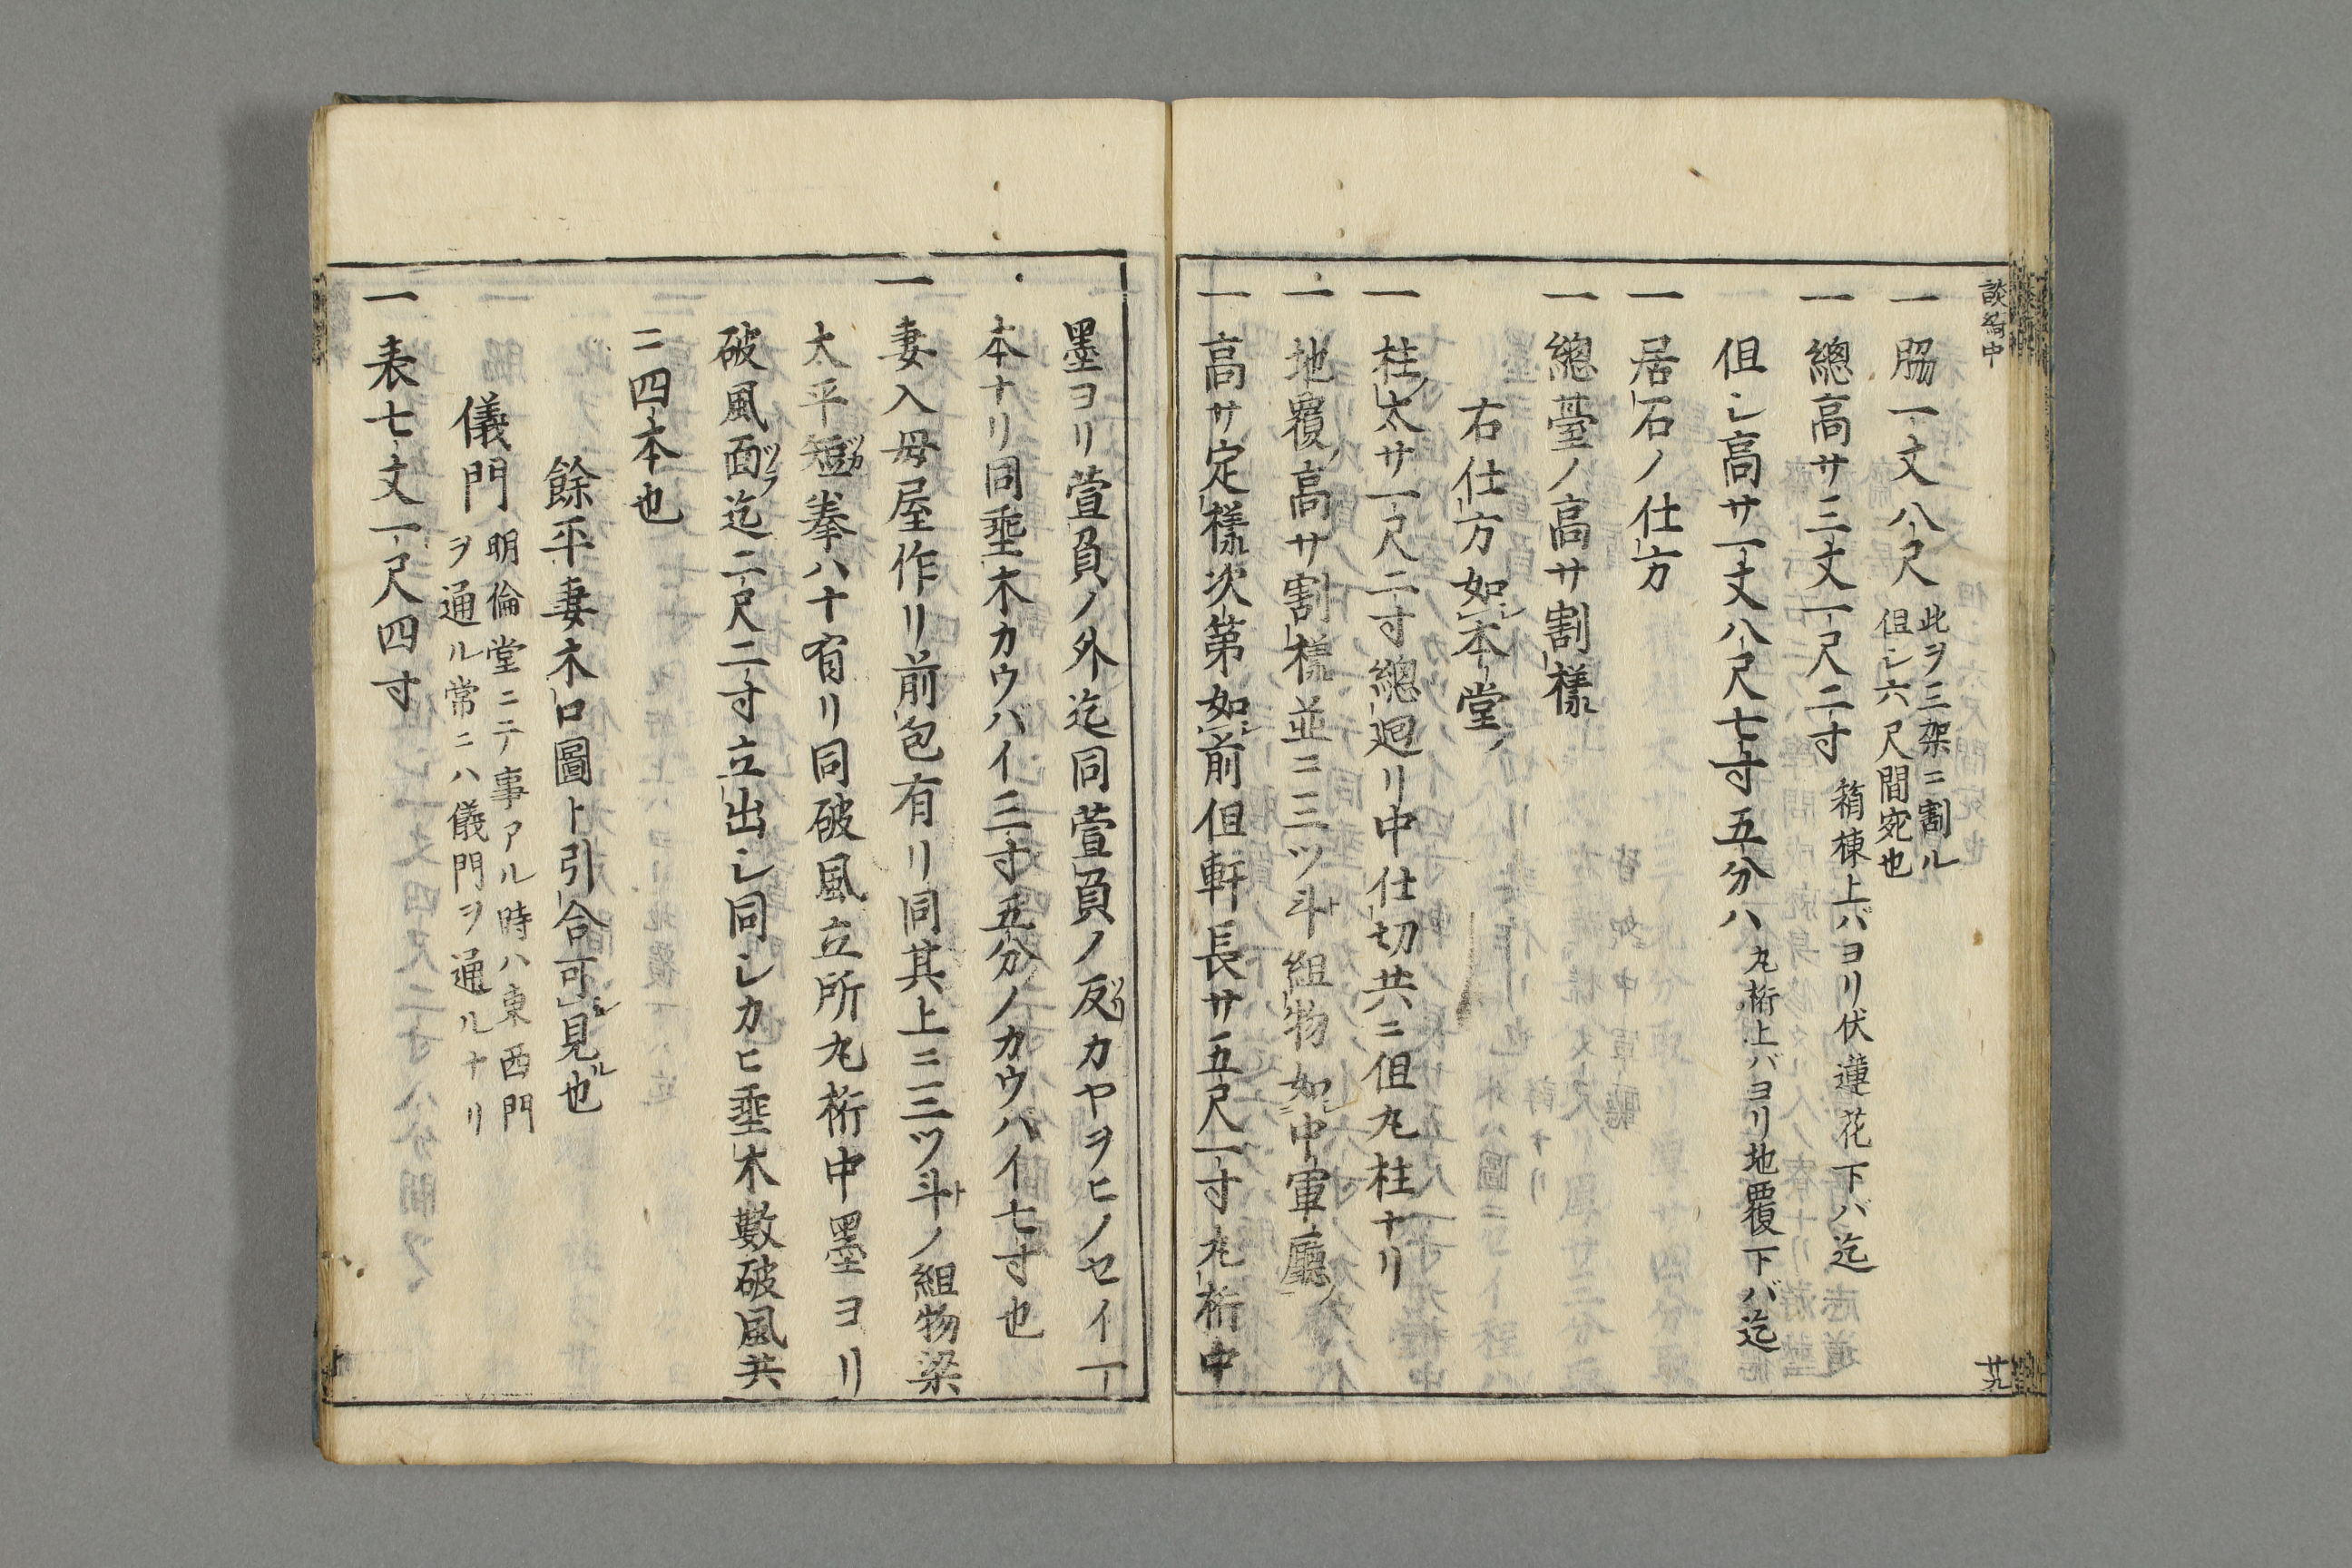 談綺中
一 脇一丈八尺 此ヲ三架ニ割ル
但シ六尺間宛也
一 總高サ三丈一尺二寸 箱棟上バヨリ伏蓮花下バ迄
但シ高サ一丈八尺七寸五分ハ 丸桁上バヨリ地覆下バ迄
一 居石ノ仕方
一 總臺ノ高サ割様
右仕方如レ本堂ノ
一 柱ノ太サ一尺二寸總廻リ中仕切共ニ但丸柱ナリ
一 地覆ノ高サ割様並ニ三ツ斗ト組物如ニ中軍廳ノ
一 高サ定様次第如レ前但軒長サ五尺一寸丸桁中
廿九
墨ヨリ萱負ノ外迄同萱負ノ反ソリカヤヲヒノセイ一
本ナリ同埀木カウバイ三寸五分ノカウバイ七寸也
一 妻入母屋作リ前包有リ同其上ニ三ツ斗トノ組物梁
太平短ヅカ拳ハナ有リ同破風立所丸桁中墨ヨリ
破風面ヅラ迄二尺二寸立出シ同シカヒ埀木數破風共
ニ四本也
餘平妻木口圖ト引合可レ見ル也
儀門 明倫堂ニテ事アル時ハ東西門
ヲ通ル常ニハ儀門ヲ通ルナリ
一 表七丈一尺四寸